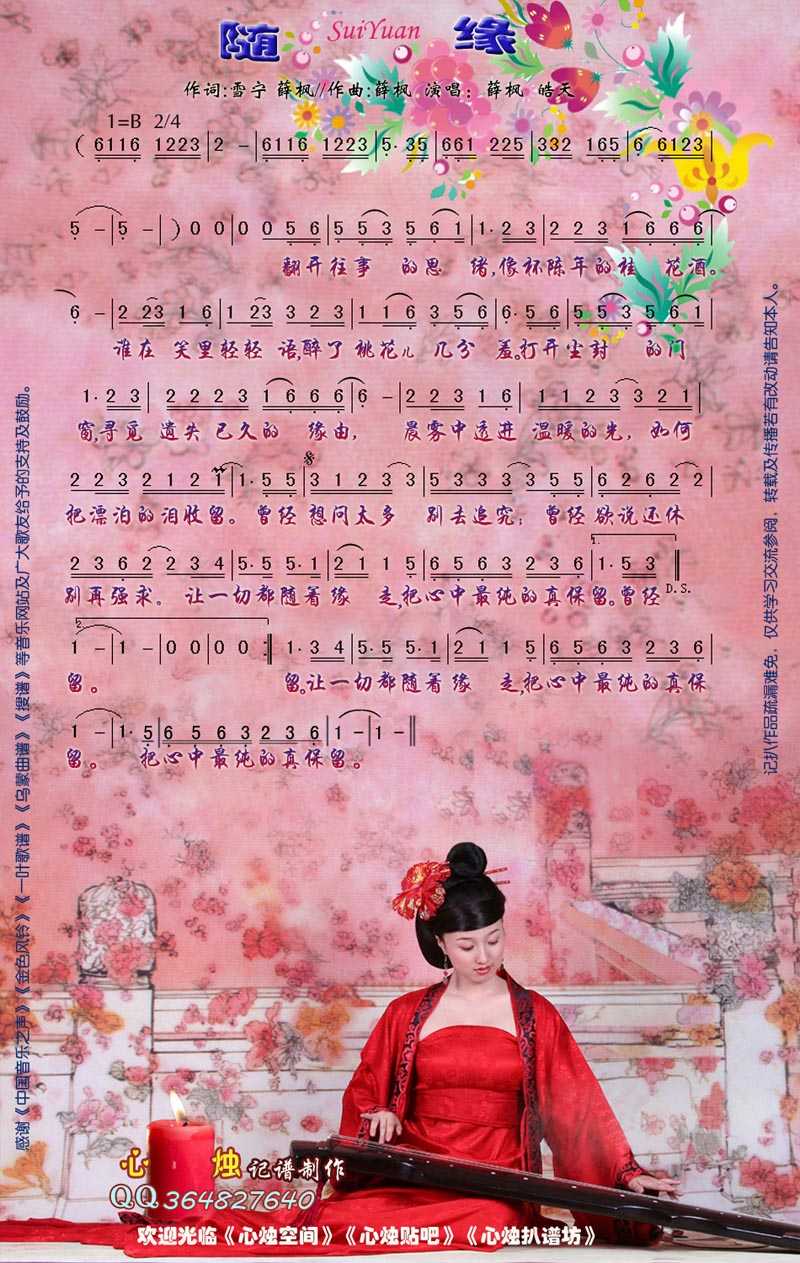 随 SuiYuan 缘
作词:雪宁 薛枫//作曲:薛枫 演唱: 薛枫 皓天
1=B 2/4
( 6116 1223 | 2 - | 6116 1223 | 5· 35 | 661 225 | 332 165 | 6 6123 |
5 - | 5 - | ) 0 0 | 0 0 5 6 | 5 5 3 5 6 1 | 1· 2 3 | 2 2 3 1 6 6 6 |
翻开往事 的思 绪,像杯陈年的桂 花酒。
6 - | 2 23 1 6 | 1 23 3 2 1 | 1 6 3 5 6 | 6· 5 6 | 5 5 3 5 6 1 |
谁在 笑里轻轻 语,醉了 桃花儿 几分 羞。打开尘封 的门
1· 2 3 | 2 2 2 3 1 6 6 6 | 6 - | 2 2 3 1 6 | 1 1 2 3 3 2 1 |
窗,寻觅 遗失 已久的 缘由, 晨雾中透进 温暖的光, 如何
2 2 3 2 1 2 1 | 1· 5 5 | 3 1 2 3 3 | 5 3 3 3 5 5 | 6 2 6 2 2 |
把漂泊的泪收留。曾经 想问太多 别去追究; 曾经欲说还休
2 3 6 2 2 3 4 | 5· 5 5· 1 | 2 1 1 5 | 6 5 6 3 2 3 6 | 1. 1· 5 3 ‖
别再强求。 让一切都随着缘 走,把心中最纯的真保留。曾经 D.S.
2. 1 - | 1 - | 0 0 | 0 0 :‖ 1· 3 4 | 5· 5 5· 1 | 2 1 1 5 | 6 5 6 3 2 3 6 |
留。 留。让一切都随着缘 走,把心中最纯的真保
1 - | 1· 5 | 6 5 6 3 2 3 6 | 1 - | 1 - ‖
留。 把心中最纯的真保留。
感谢《中国音乐之声》《金色风铃》《一叶歌谱》《乌蒙曲谱》《搜谱》等音乐网站及广大歌友给予的支持及鼓励。
记扒作品疏漏难免, 仅供学习交流参阅, 转载及传播若有改动请告知本人。
心 烛 记谱制作
QQ364827640
欢迎光临《心烛空间》《心烛贴吧》《心烛扒谱坊》